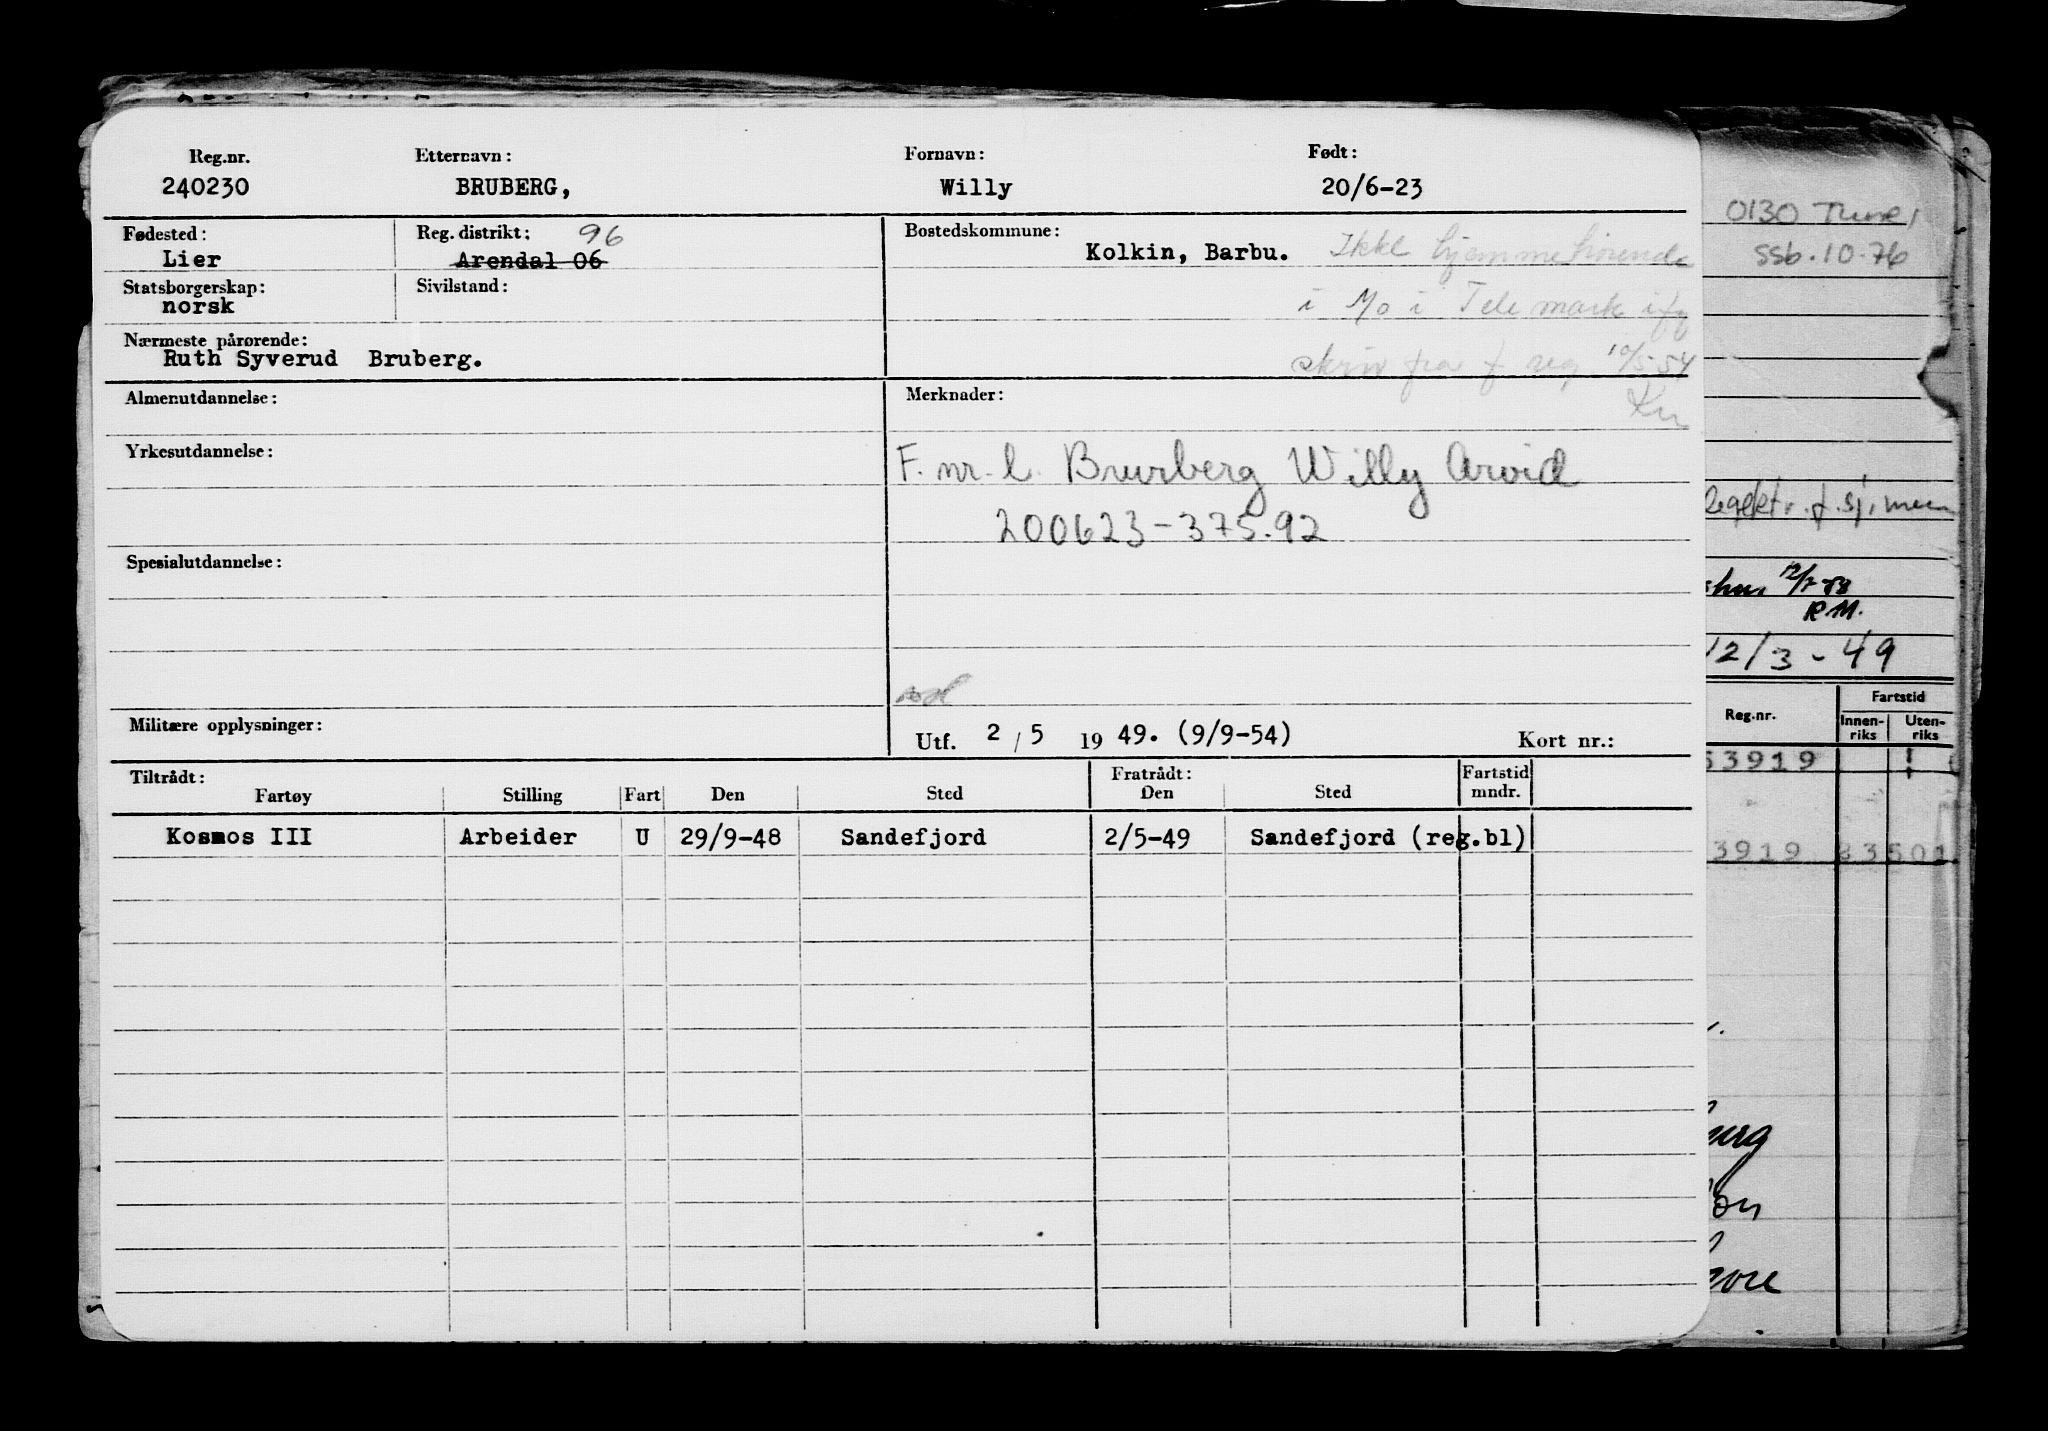 Reg.nr. Etternavn: Fornavn: Født:
240230 BRUBERG, Willy 20/6-23
Fødested: Reg. distrikt: 96 Bostedskommune:
Lier Arendal 06 Kolkin, Barbu. Ikke hjemmehørende
Statsborgerskap: Sivilstand:
norsk i Mo i Telemark ifg
Nærmeste pårørende:
Ruth Syverud Bruberg. skriv fra f reg 10/5-54
Almenutdannelse: Merknader:
Yrkesutdannelse:
F. nr. l. Bruberg Willy Arvid
200623-375.92
Spesialutdannelse:
Militære opplysninger:
Utf. 2 / 5 19 49. (9/9-54) Kort nr.:
Tiltrådt: Fratrådt: Fartstid
Fartøy Stilling Fart Den Sted Den Sted mndr.
Kosmos III Arbeider U 29/9-48 Sandefjord 2/5-49 Sandefjord (reg.bl)
0130 Tune,
ssb.10.76
f. sj. men
12/7-
R.M.
12/3-49
Reg.nr. Fartstid
Innen-riks Uten-riks
3919 !
3919